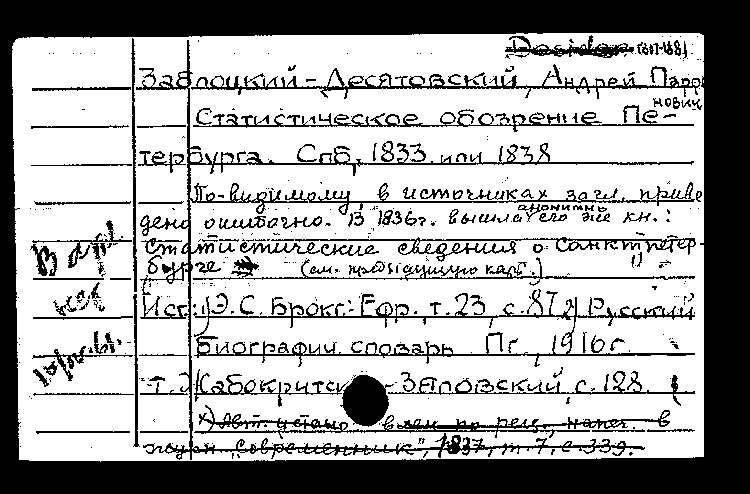 Desider (1807-1881)
Заблоцкий-Десятовский, Андрей Парфе
нович
Статистическое обозрение Пе-
тербурга. Спб, 1833 или 1838
По-видимому, в источниках загл. приве
дено ошибочно. В 1836г. вышла анонимно его же кн.:
Статистические сведения о Санктпетер-
бурге (см. предыдущую карт.)
Ист.: 1) Э.С. Брокг.-Ефр., т.23, с.87 2) Русский
биографич. словарь Пг., 1916г.
т. Жабокритск -Зяловский, с. 128.
х) Авт. устано влен по рец., напеч. в
журн. "Современник", 1837, т.7, с.339.
В
нет